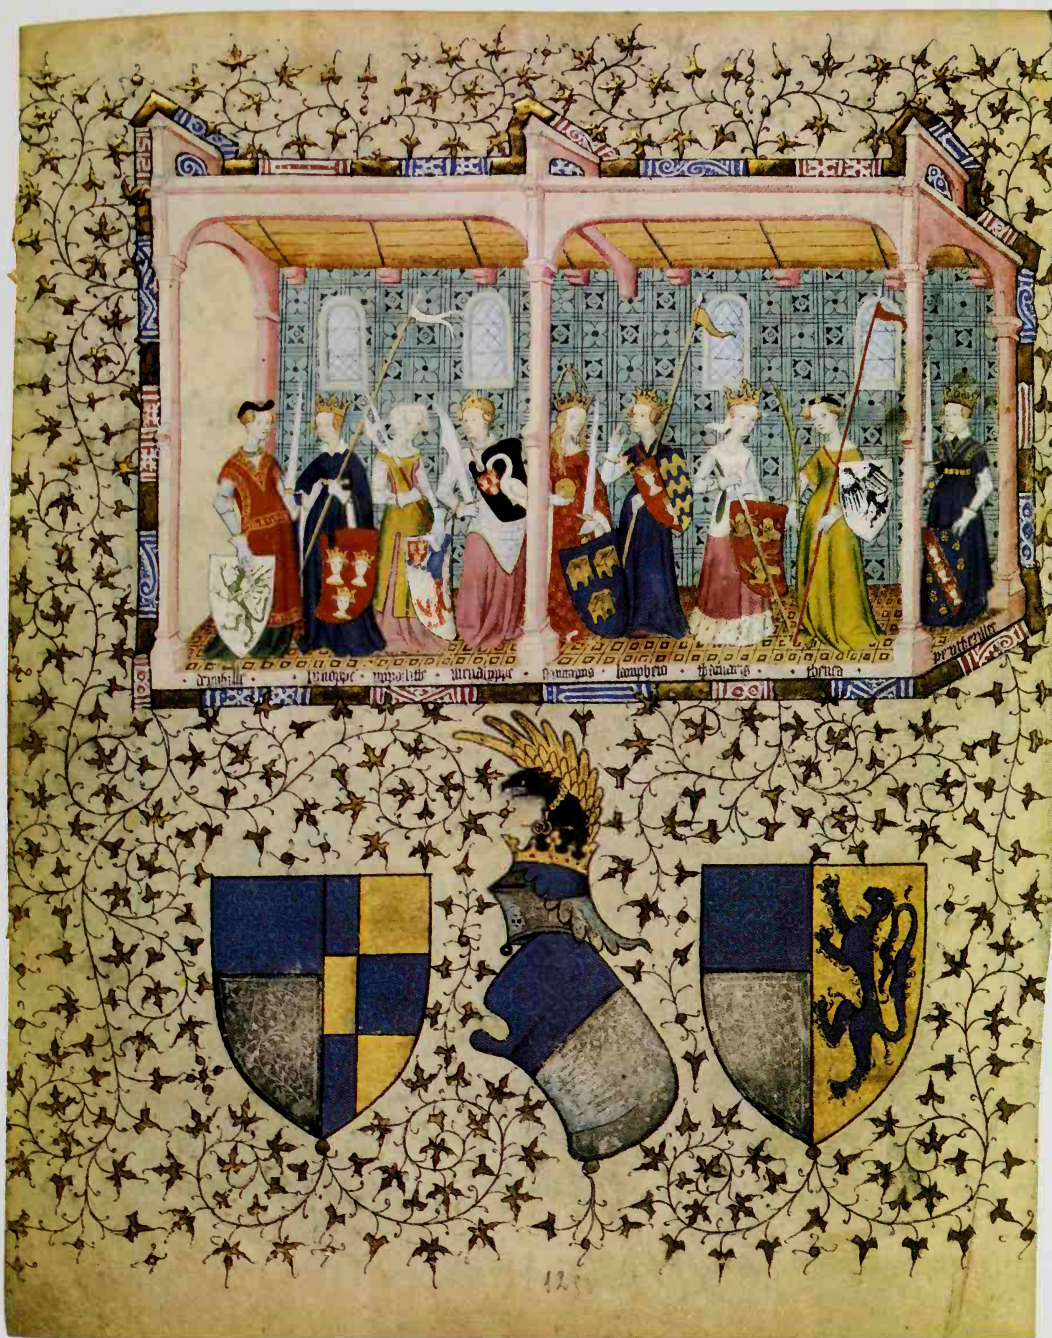 deyphille · synoppe · yppolite · menalippe · semiramis · lampheto · thamaris · theuca · penthezillee
125